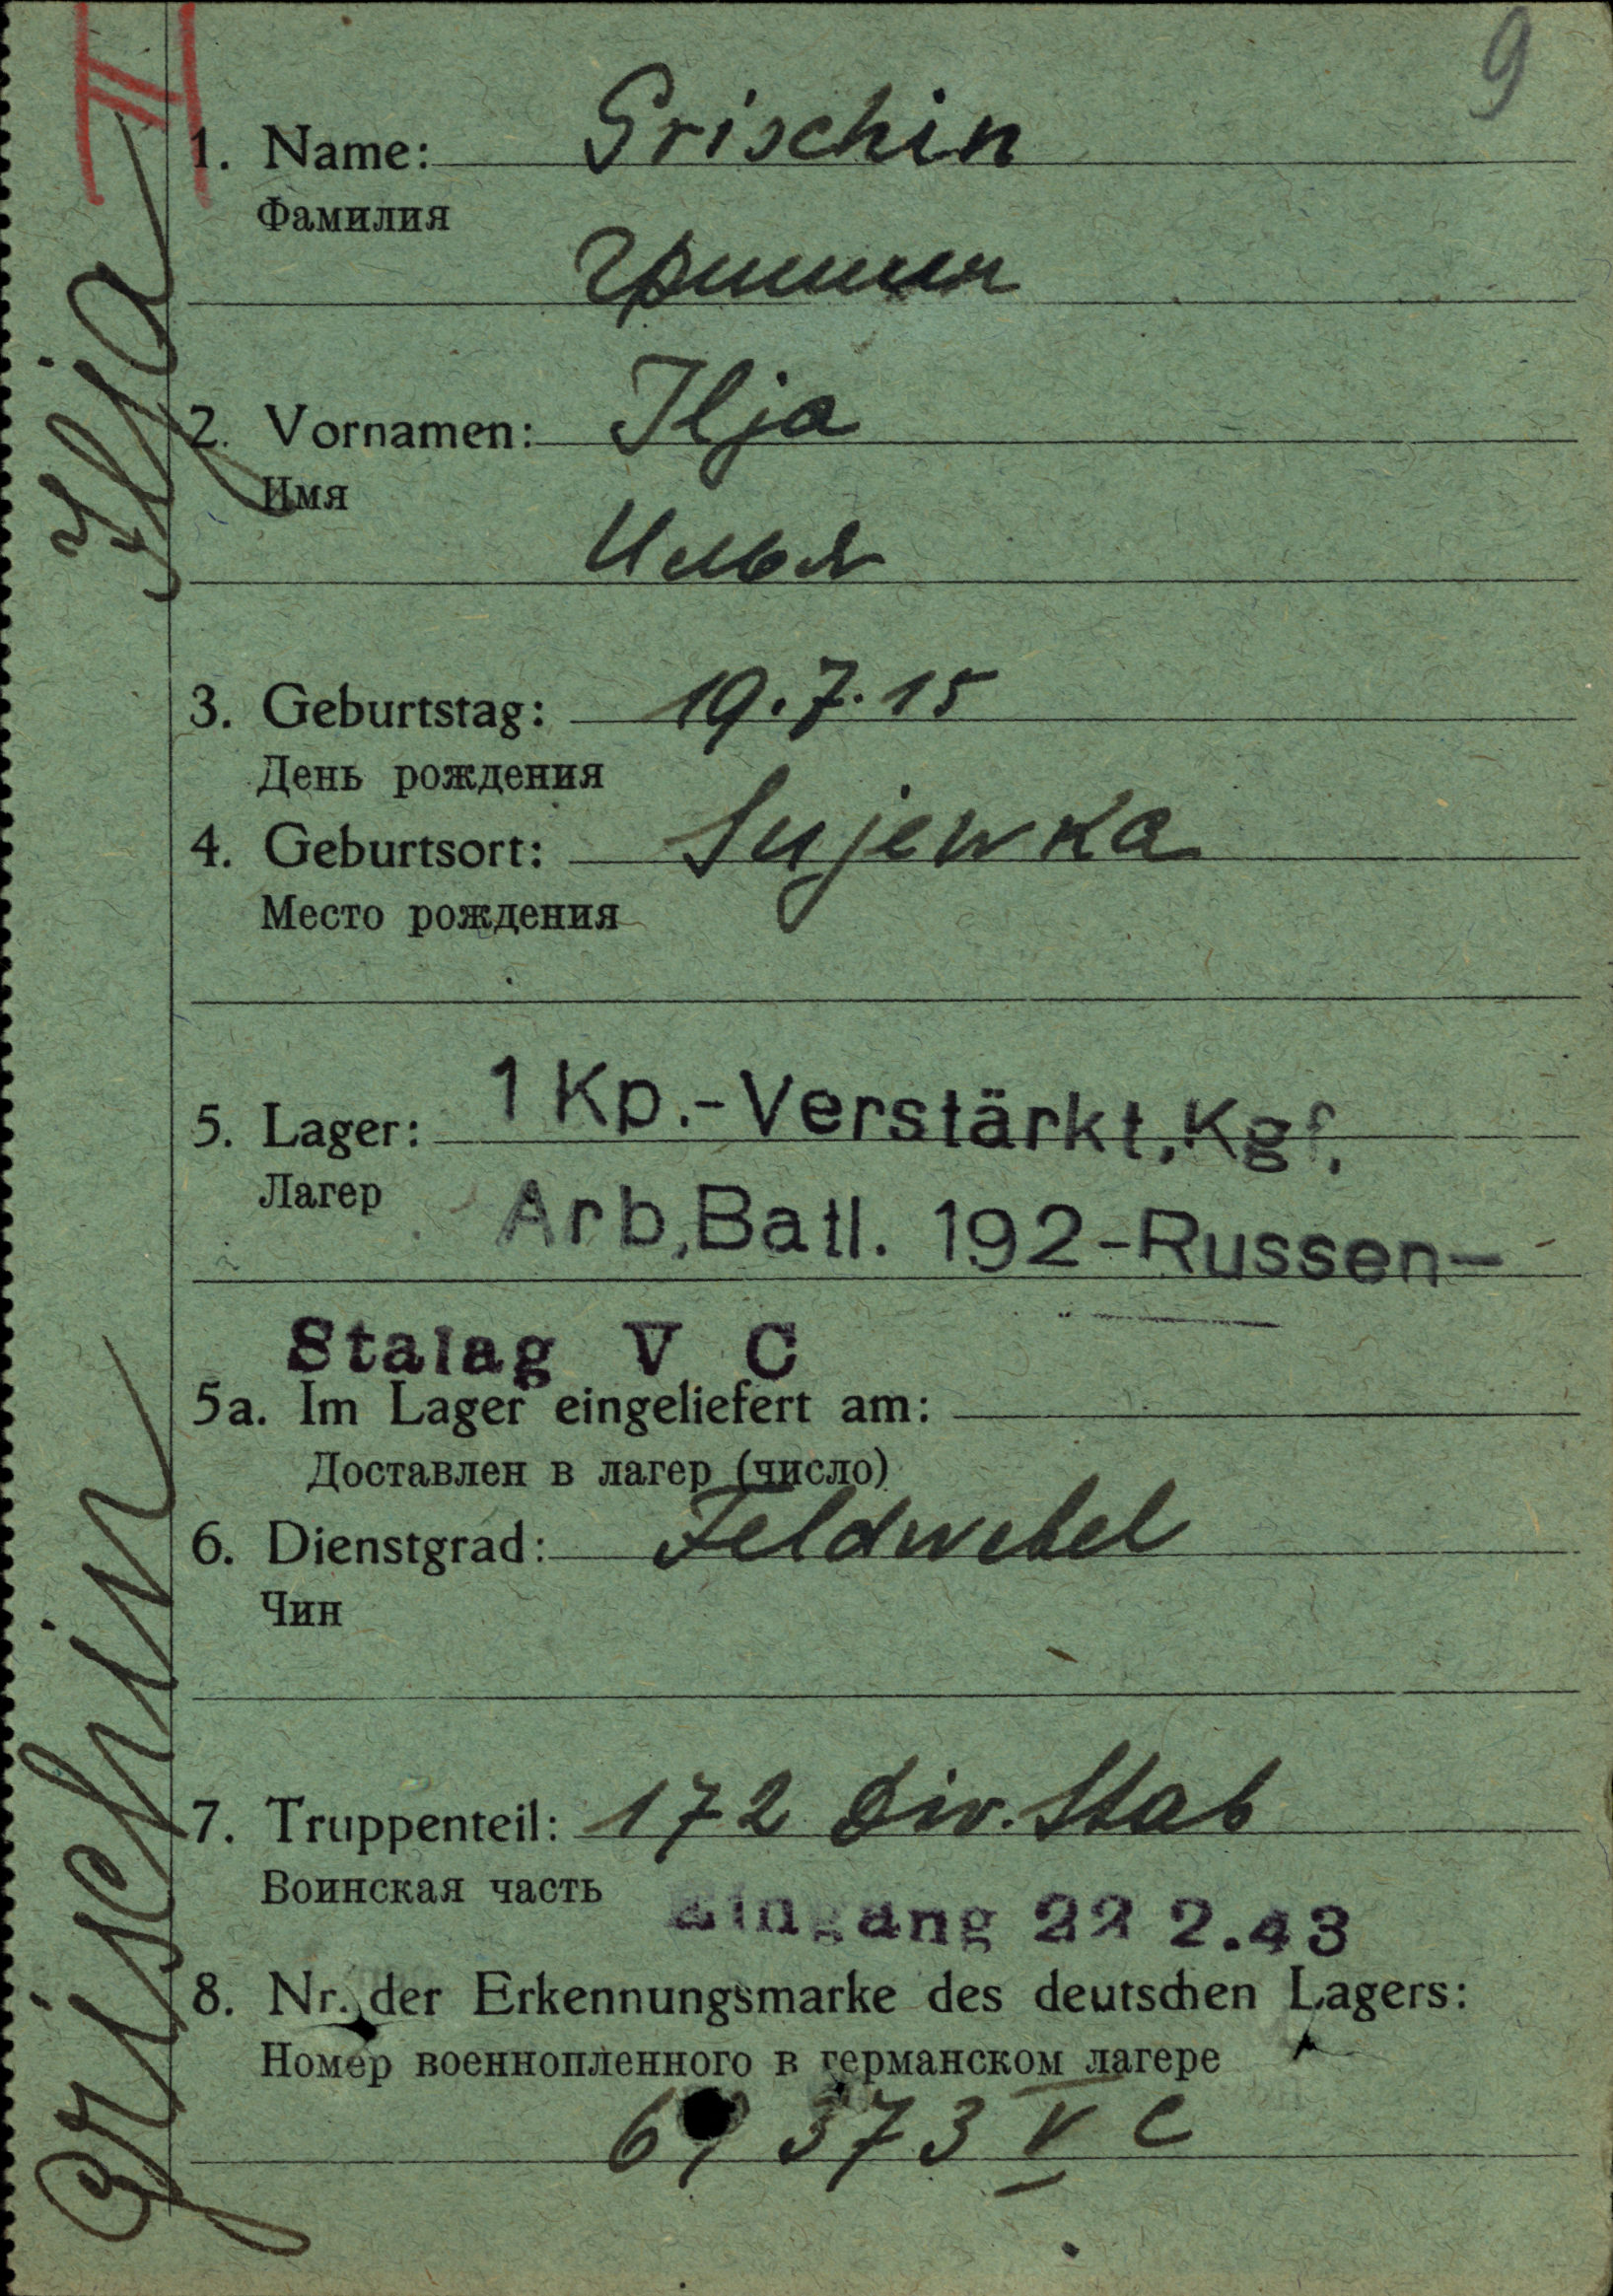 9
1. Name: Grischin
Фамилия
Гришин
2. Vornamen: Ilja
Имя
Илья
3. Geburtstag: 19.7.15
День рождения
4. Geburtsort: Sujewka
Место рождения
5. Lager: 1 Kp.-Verstärkt,Kgf,
Лагер Arb,Batl. 192-Russen-
Stalag V C
5a. Im Lager eingeliefert am:
Доставлен в лагер (число)
6. Dienstgrad: Feldwebel
Чин
7. Truppenteil: 172 Div. Stab
Воинская часть
Eingang 22 2.43
8. Nr. der Erkennungsmarke des deutschen Lagers:
Номер военнопленного в германском лагере
373 V C
Grischin Ilja